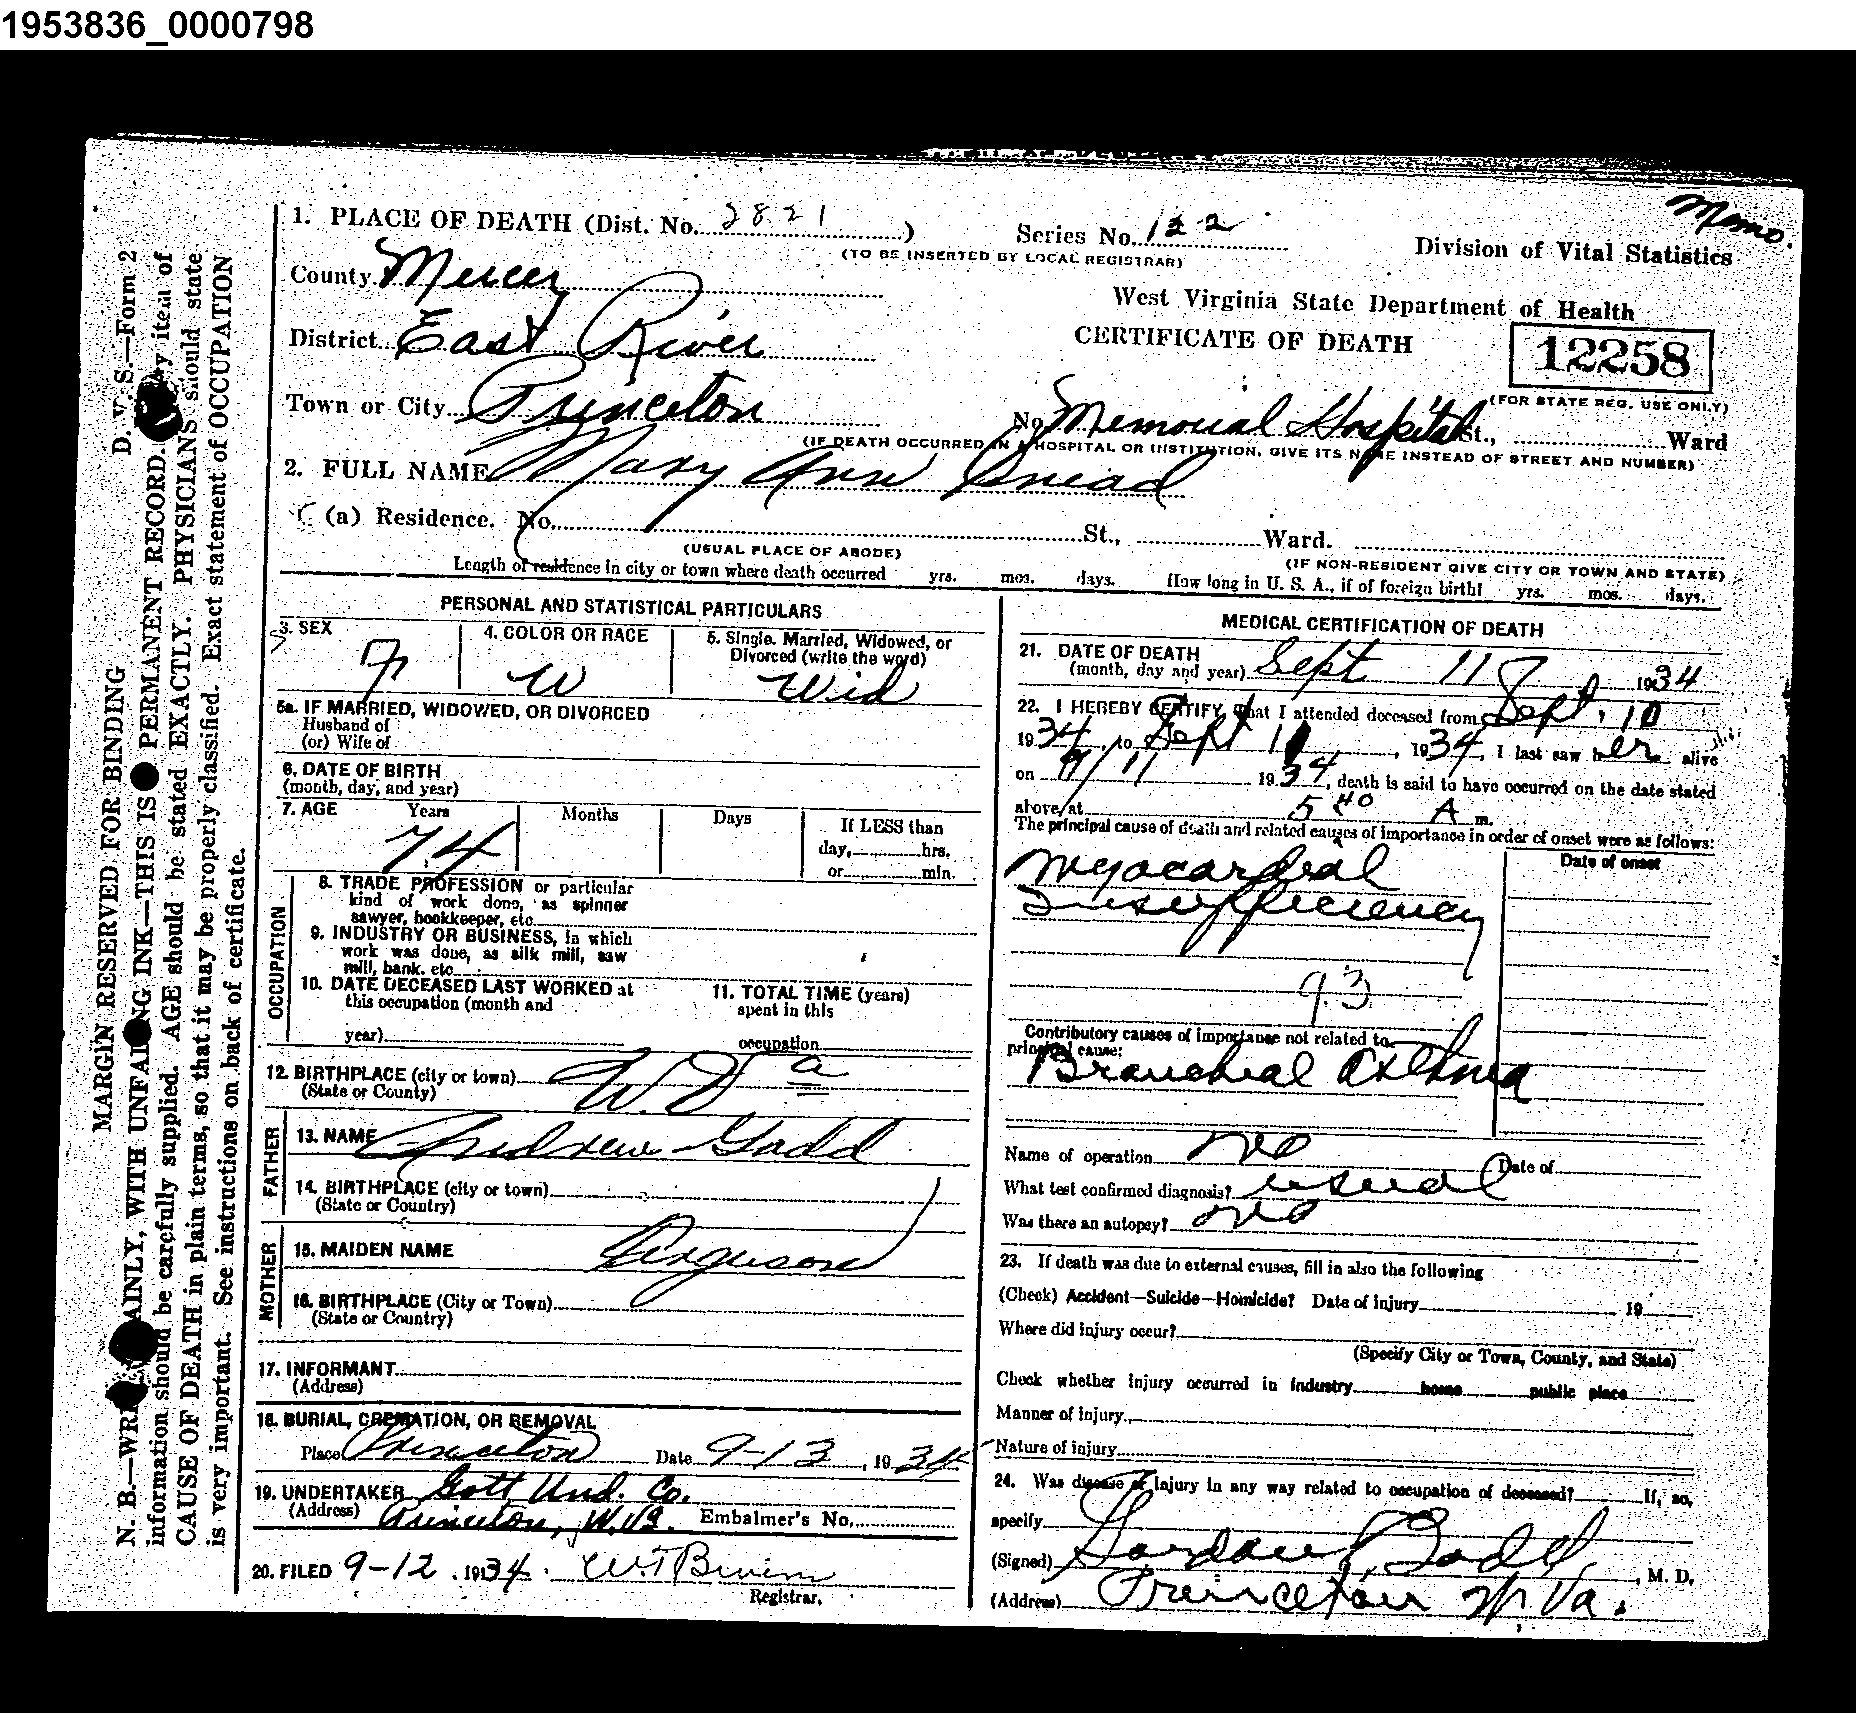 1953836_0000798
Memo.
1. PLACE OF DEATH (Dist. No. 2821) Series No. 122
(TO BE INSERTED BY LOCAL REGISTRAR)
Division of Vital Statistics
County Mercer
West Virginia State Department of Health
District East River
CERTIFICATE OF DEATH
12258
(FOR STATE REG. USE ONLY)
Town or City Princeton No. Memorial Hospital St., Ward
(IF DEATH OCCURRED IN A HOSPITAL OR INSTITUTION, GIVE ITS NAME INSTEAD OF STREET AND NUMBER)
2. FULL NAME Mary Ann Snead
(a) Residence. No. St., Ward.
(USUAL PLACE OF ABODE) (IF NON-RESIDENT GIVE CITY OR TOWN AND STATE)
Length of residence in city or town where death occurred yrs. mos. days. How long in U. S. A., if of foreign birth? yrs. mos. days.
PERSONAL AND STATISTICAL PARTICULARS
3. SEX F
4. COLOR OR RACE W
5. Single, Married, Widowed, or
Divorced (write the word)
Wid
5a. IF MARRIED, WIDOWED, OR DIVORCED
Husband of
(or) Wife of
6. DATE OF BIRTH
(month, day, and year)
7. AGE Years Months Days If LESS than
74 day, hrs.
or min.
OCCUPATION
8. TRADE PROFESSION or particular
kind of work done, as spinner
sawyer, bookkeeper, etc.
9. INDUSTRY OR BUSINESS, in which
work was done, as silk mill, saw
mill, bank, etc.
10. DATE DECEASED LAST WORKED at
this occupation (month and
year)
11. TOTAL TIME (years)
spent in this
occupation
12. BIRTHPLACE (city or town) W. Va
(State or County)
FATHER
13. NAME Andrew Gadd
14. BIRTHPLACE (city or town)
(State or Country)
MOTHER
15. MAIDEN NAME Ferguson
16. BIRTHPLACE (City or Town)
(State or Country)
17. INFORMANT
(Address)
18. BURIAL, CREMATION, OR REMOVAL
Place Princeton Date 9-13, 1934
19. UNDERTAKER Gott Und. Co.
(Address) Princeton, W. Va. Embalmer's No.
20. FILED 9-12, 1934.
Registrar.
MEDICAL CERTIFICATION OF DEATH
21. DATE OF DEATH
(month, day and year) Sept 11 1934
22. I HEREBY CERTIFY, that I attended deceased from Sept. 10
1934 to Sept 11, 1934, I last saw her alive
on 9/11 1934, death is said to have occurred on the date stated
above, at 5 40 A m.
The principal cause of death and related causes of importance in order of onset were as follows:
Date of onset
Myocardial
Insufficiency
93
Contributory causes of importance not related to
principal cause:
Bronchial Asthma
Name of operation no Date of
What test confirmed diagnosis? usual
Was there an autopsy? no
23. If death was due to external causes, fill in also the following
(Check) Accident—Suicide—Homicide? Date of injury 19
Where did injury occur?
(Specify City or Town, County, and State)
Check whether injury occurred in industry home public place
Manner of injury
Nature of injury
24. Was disease or injury in any way related to occupation of deceased? If, so,
specify
(Signed) , M. D.
(Address) Princeton W. Va.
D. V. S.—Form 2
MARGIN RESERVED FOR BINDING
N. B.—WRITE PLAINLY, WITH UNFADING INK—THIS IS A PERMANENT RECORD. Every item of
information should be carefully supplied. AGE should be stated EXACTLY. PHYSICIANS should state
CAUSE OF DEATH in plain terms, so that it may be properly classified. Exact statement of OCCUPATION
is very important. See instructions on back of certificate.